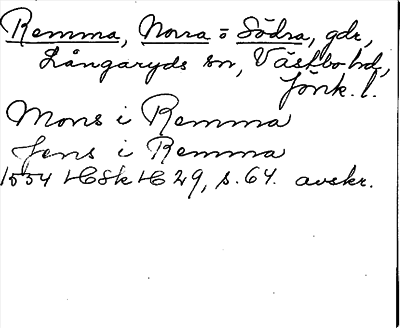 Remma, Norra o Södra, gdr,
Långaryds sn, Västbo hd,
Jönk. l.
Mons i Remma
Jens i Remma
1554 HSkH 29, s. 64. avskr.